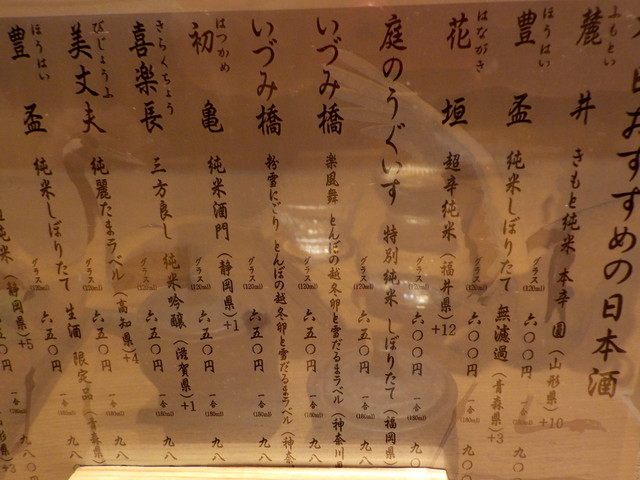 日おすすめの日本酒
ふもとい
麓井 きもと純米 本辛 圓 (山形県)+10
グラス(120ml) 六〇〇円 一合(180ml) 九〇
ほうはい
豊盃 純米しぼりたて 無濾過 (青森県)+3
グラス(120ml) 六〇〇円 一合(180ml) 九〇
はながき
花垣 超辛純米 (福井県)+12
グラス(120ml) 六〇〇円 一合(180ml) 九八
庭のうぐいす 特別純米 しぼりたて (福岡県)
グラス(120ml) 六五〇円 一合(180ml) 九八
いづみ橋 楽風舞 とんぼの越冬卵と雪だるまラベル (神奈川県
グラス(120ml) 六五〇円 一合(180ml) 九八
いづみ橋 粉雪にごり とんぼの越冬卵と雪だるまラベル (神奈
グラス(120ml) 六五〇円 一合(180ml) 九八
はつかめ
初亀 純米酒門 (静岡県)+1
グラス(120ml) 六五〇円 一合(180ml) 九八
きらくちょう
喜楽長 三方良し 純米吟醸 (滋賀県)+1
グラス(120ml) 六五〇円 一合(180ml) 九八
びじょうふ
美丈夫 純麗たまラベル (高知県)+4
グラス(120ml) 六五〇円 一合(180ml) 九八
ほうはい
豊盃 純米しぼりたて 生酒 限定品 (青森県)
グラス(120ml) 六五〇円 一合(180ml) 九八〇
純米 (静岡県)+5